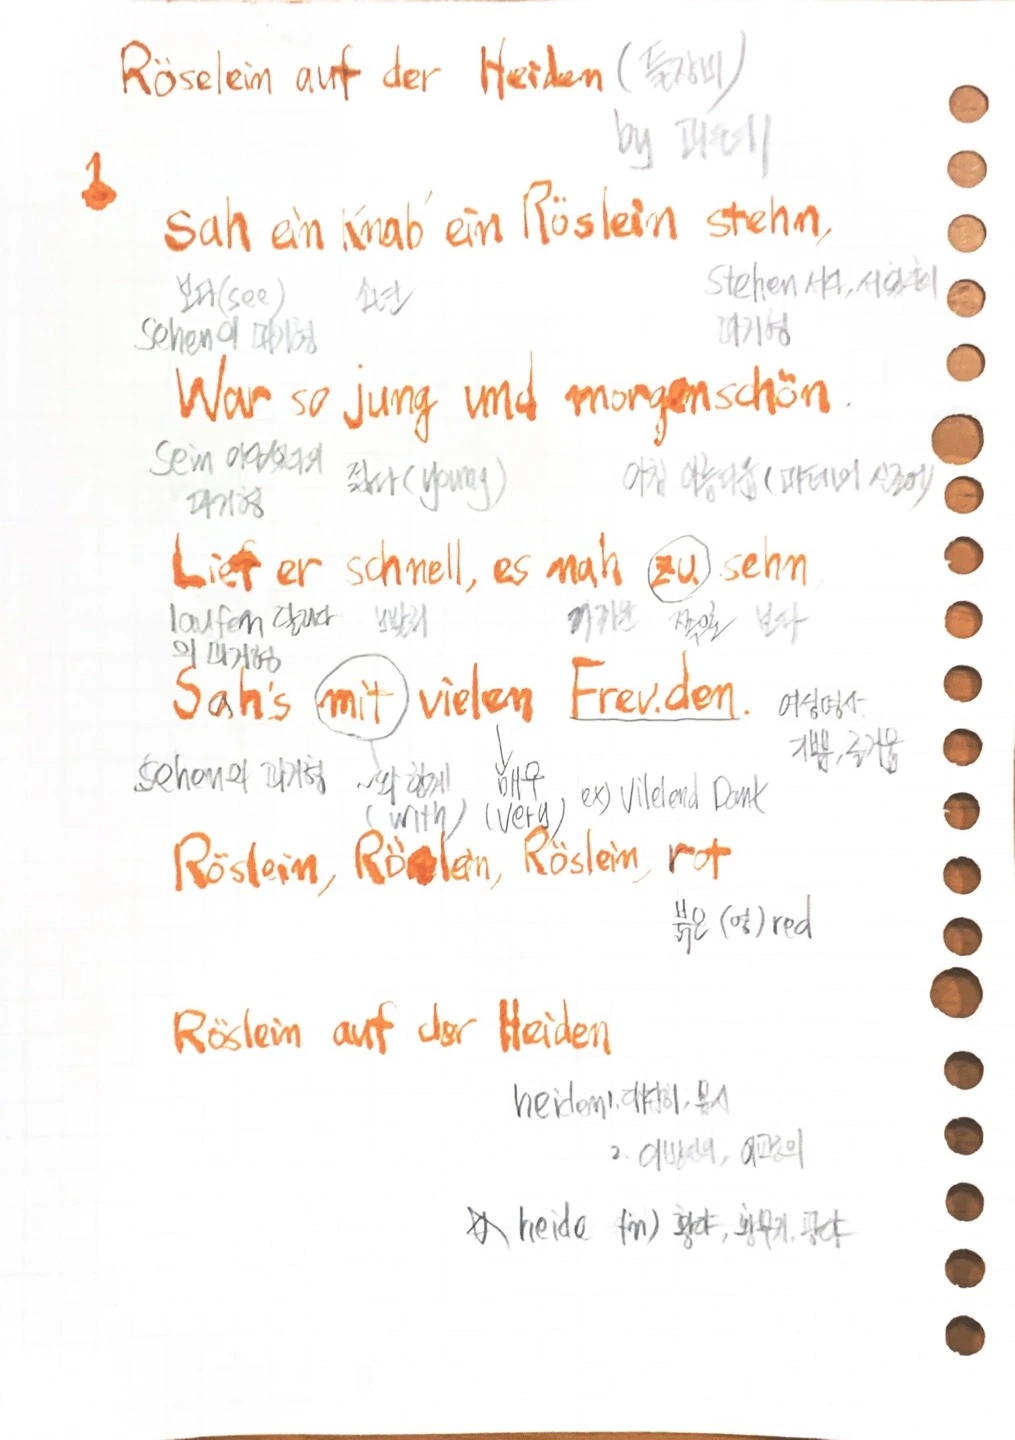 Röselein auf der Heiden (들장미)
by 괴테
1
Sah ein Knab' ein Röslein stehn,
보다(see) 소년 stehen 서다, 서있다의
sehen의 과거형 과거형
War so jung und morgenschön.
sein 의 젊다(young) 아침 아름다움(괴테의
과거형
Lief er schnell, es nah zu sehn
laufen 달리다 빨리 가까운 보다
의 과거형
Sah's mit vielen Freuden. 여성명사
기쁨, 즐거움
sehen의 과거형 ~와 함께 매우 ex) Vilelend Dank
(with) (very)
Röslein, Röslein, Röslein, rot
붉은 (영) red
Röslein auf der Heiden
heiden 1. 대단히, 몹시
2. 이방인의, 이교도의
heide f.n) 황야, 황무지, 광야